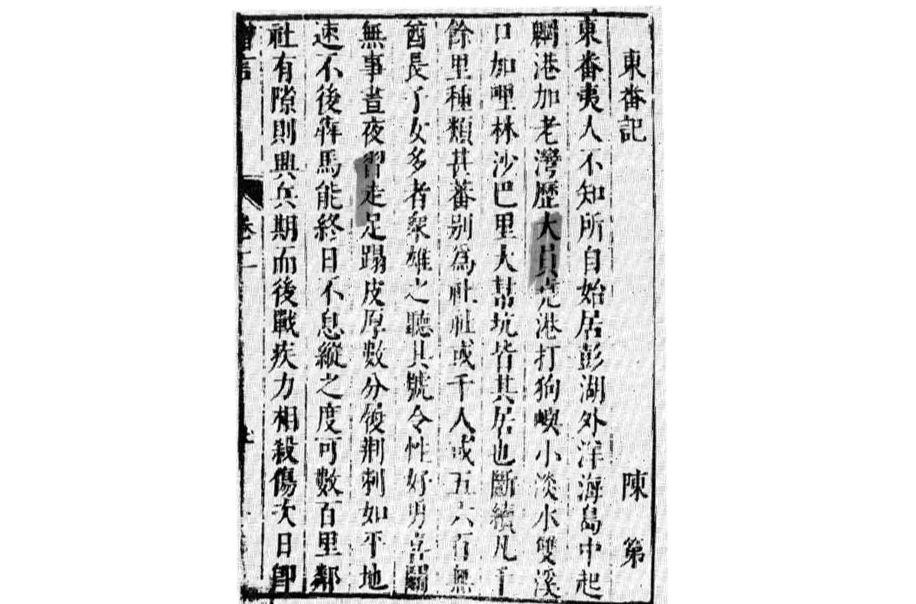 東番記　陳第
東番夷人不知所自始居彭湖外洋海島中起
魍港加老灣歷大員堯港打狗嶼小淡水雙溪
口加哩林沙巴里大幫坑皆其居也斷續凡千
餘里種類甚蕃別為社社或千人或五六百無
酋長子女多者眾雄之聽其號令性好勇喜鬬
無事晝夜習走足蹋皮厚數分履荆刺如平地
速不後犇馬能終日不息縱之度可數百里鄰
社有隙則興兵期而後戰疾力相殺傷次日卽